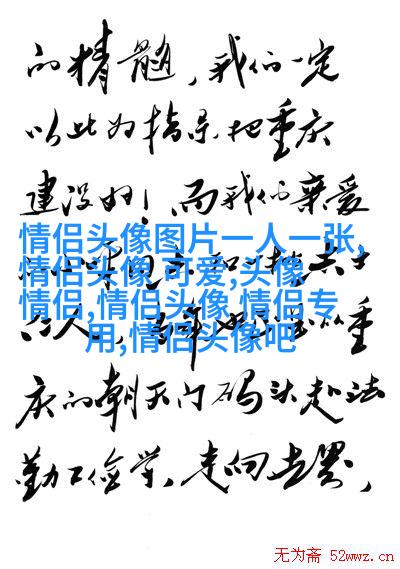 的精髓，我们一定
以此为指导把重庆
建设好！而我们亲爱
情侣头像图片一人一张,
情侣头像 可爱,头像
情侣,情侣头像 情侣专
用,情侣头像吧
重
庆的朝天门码头赴法
勤工俭学，走向世界，
无为斋 52wwz.cn